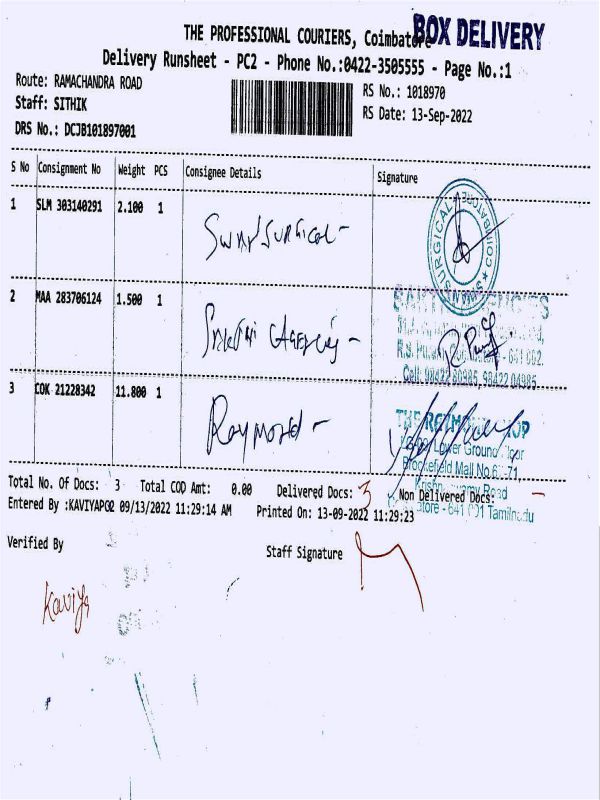 THE PROFESSIONAL COURIERS, Coimbatore
BOX DELIVERY
Delivery Runsheet - PC2 - Phone No.:0422-3505555 - Page No.:1
Route: RAMACHANDRA ROAD
Staff: SITHIK
DRS No.: DCJB101897001
RS No.: 1018970
RS Date: 13-Sep-2022
S No Consignment No Weight PCS Consignee Details Signature
1 SLM 303140291 2.100 1
SURGICAL COIMBATORE
2 MAA 283706124 1.500 1
Cell: 98422 80985, 98422 04985
3 COK 21228342 11.800 1 Raymond -
Lower Ground Floor
Brookefield Mall No.67-71,
Road
641 001 Tamilnadu
Total No. Of Docs: 3 Total COD Amt: 0.00 Delivered Docs: 3 Non Delivered Docs: -
Entered By :KAVIYAPC2 09/13/2022 11:29:14 AM Printed On: 13-09-2022 11:29:23
Verified By Staff Signature
Kaviya